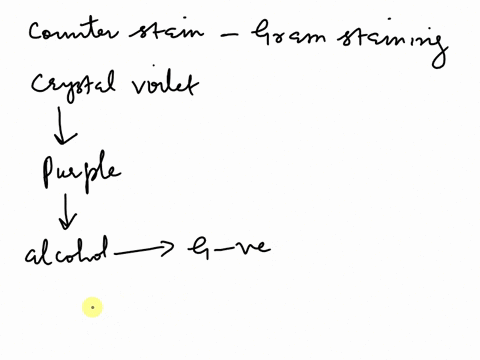 Counter stain - Gram staining
Crystal voilet
↓
Purple
↓
alcohol → G -ve